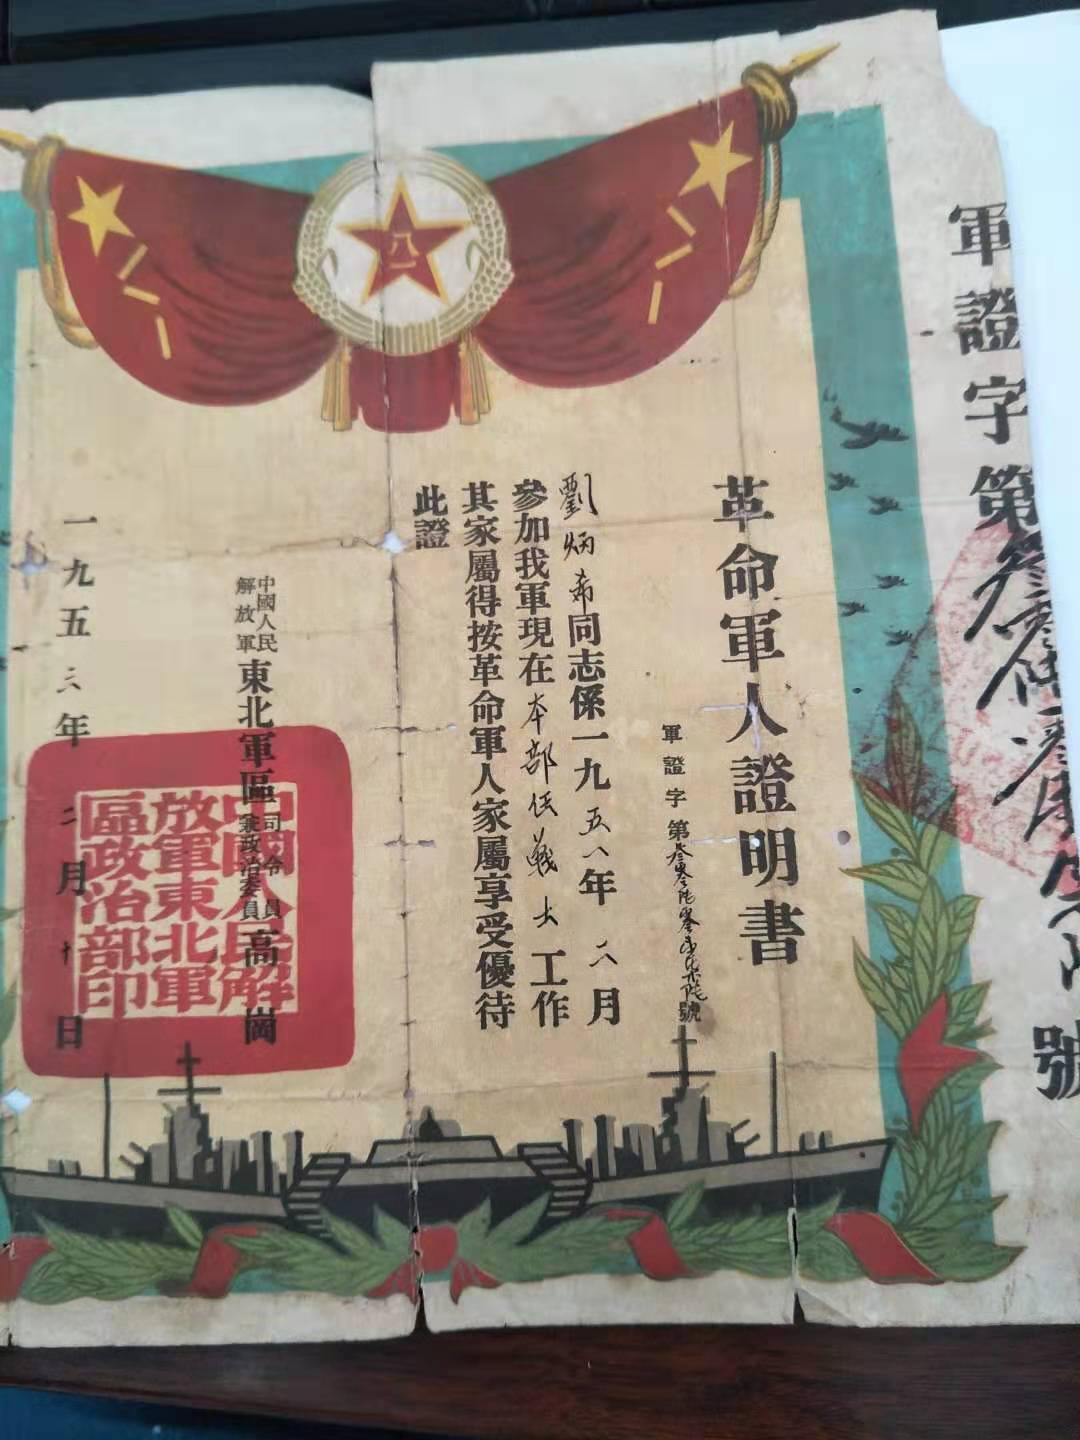 軍證字第
號
八一
革命軍人證明書
軍證字第
號
劉炳希同志係一九五八年二八月
參加我軍現在本部任戰士工作
其家屬得按革命軍人家屬享受優待
此證
中國人民解放軍東北軍區司令員兼政治委員高崗
一九五三年二月十日
中國人民解放軍東北軍區政治部印